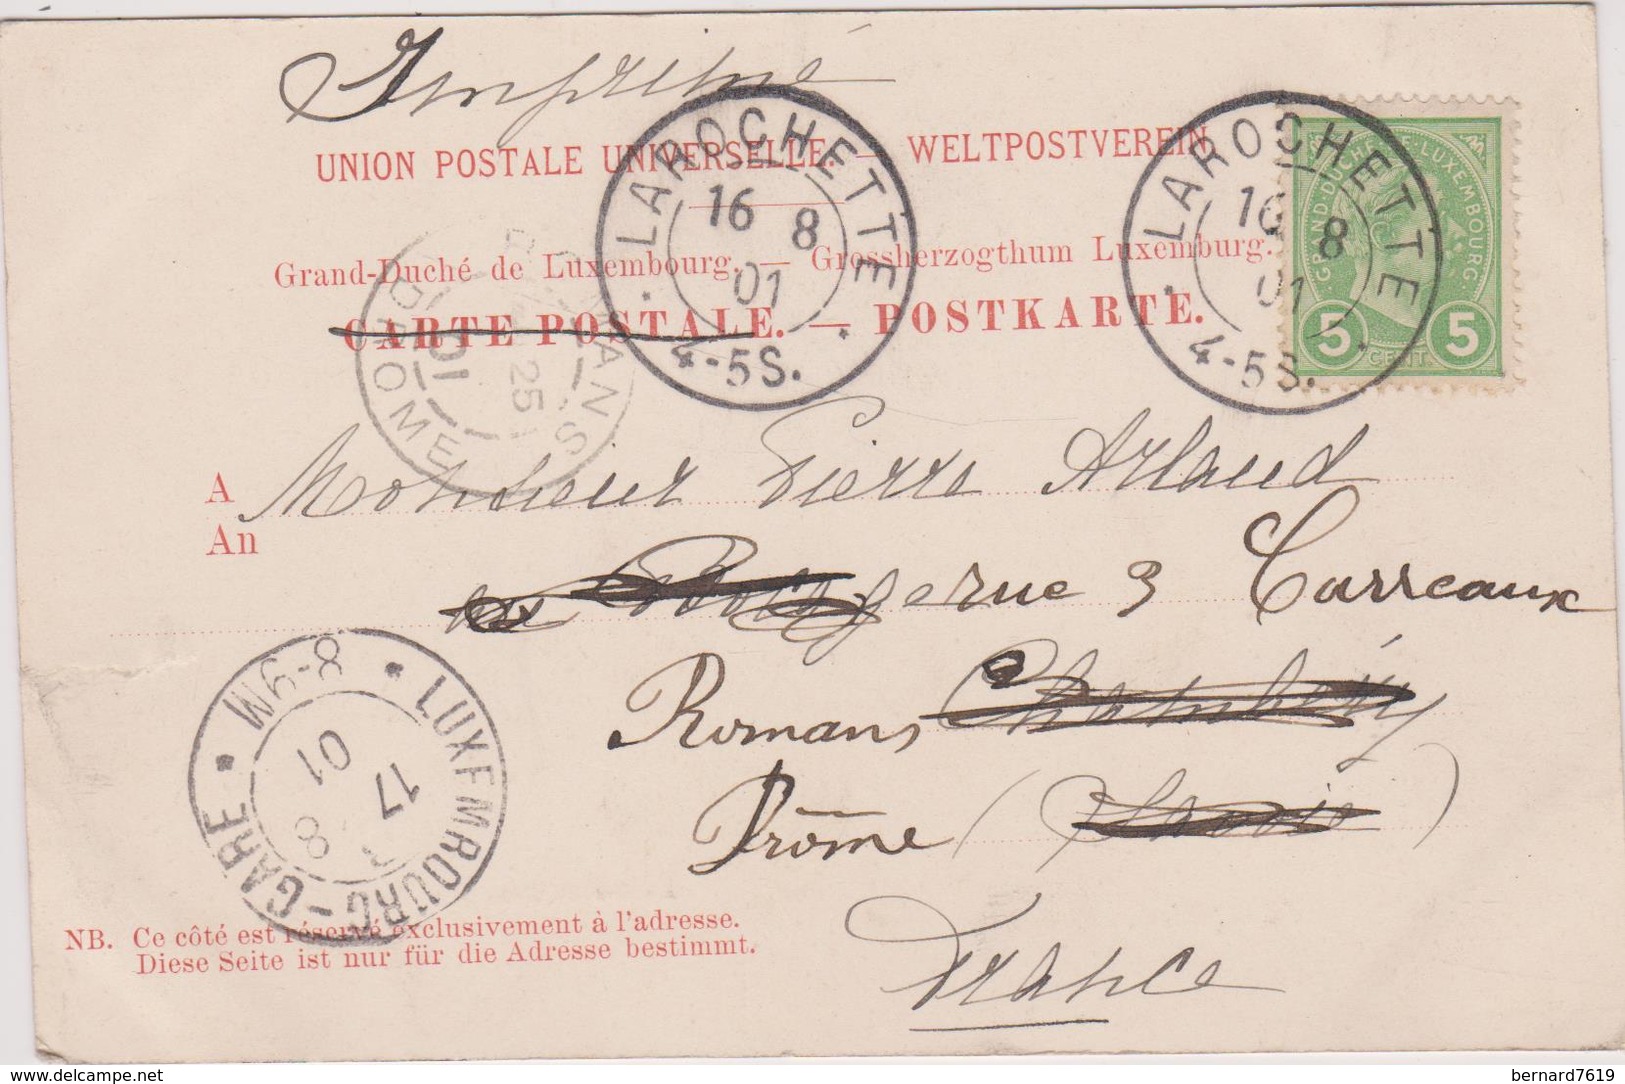 Imprimé
UNION POSTALE UNIVERSELLE. — WELTPOSTVEREIN
Grand-Duché de Luxembourg. — Grossherzogthum Luxemburg.
CARTE POSTALE. — POSTKARTE.
LAROCHETTE
16 8
01
4-5S.
LAROCHETTE
16 8
01
4-5S.
GRAND-DUCHÉ DE LUXEMBOURG.
5 CENT. 5
ROMANS
25
01
DROME
A Monsieur Pierre Arlaud
An
rue 3 Carreaux
Romans, Chambéry
Drôme (Savoie)
France
LUXEMBOURG-GARE
8-9M
17 8
01
NB. Ce côté est réservé exclusivement à l'adresse.
Diese Seite ist nur für die Adresse bestimmt.
delcampe.net
bernard7619